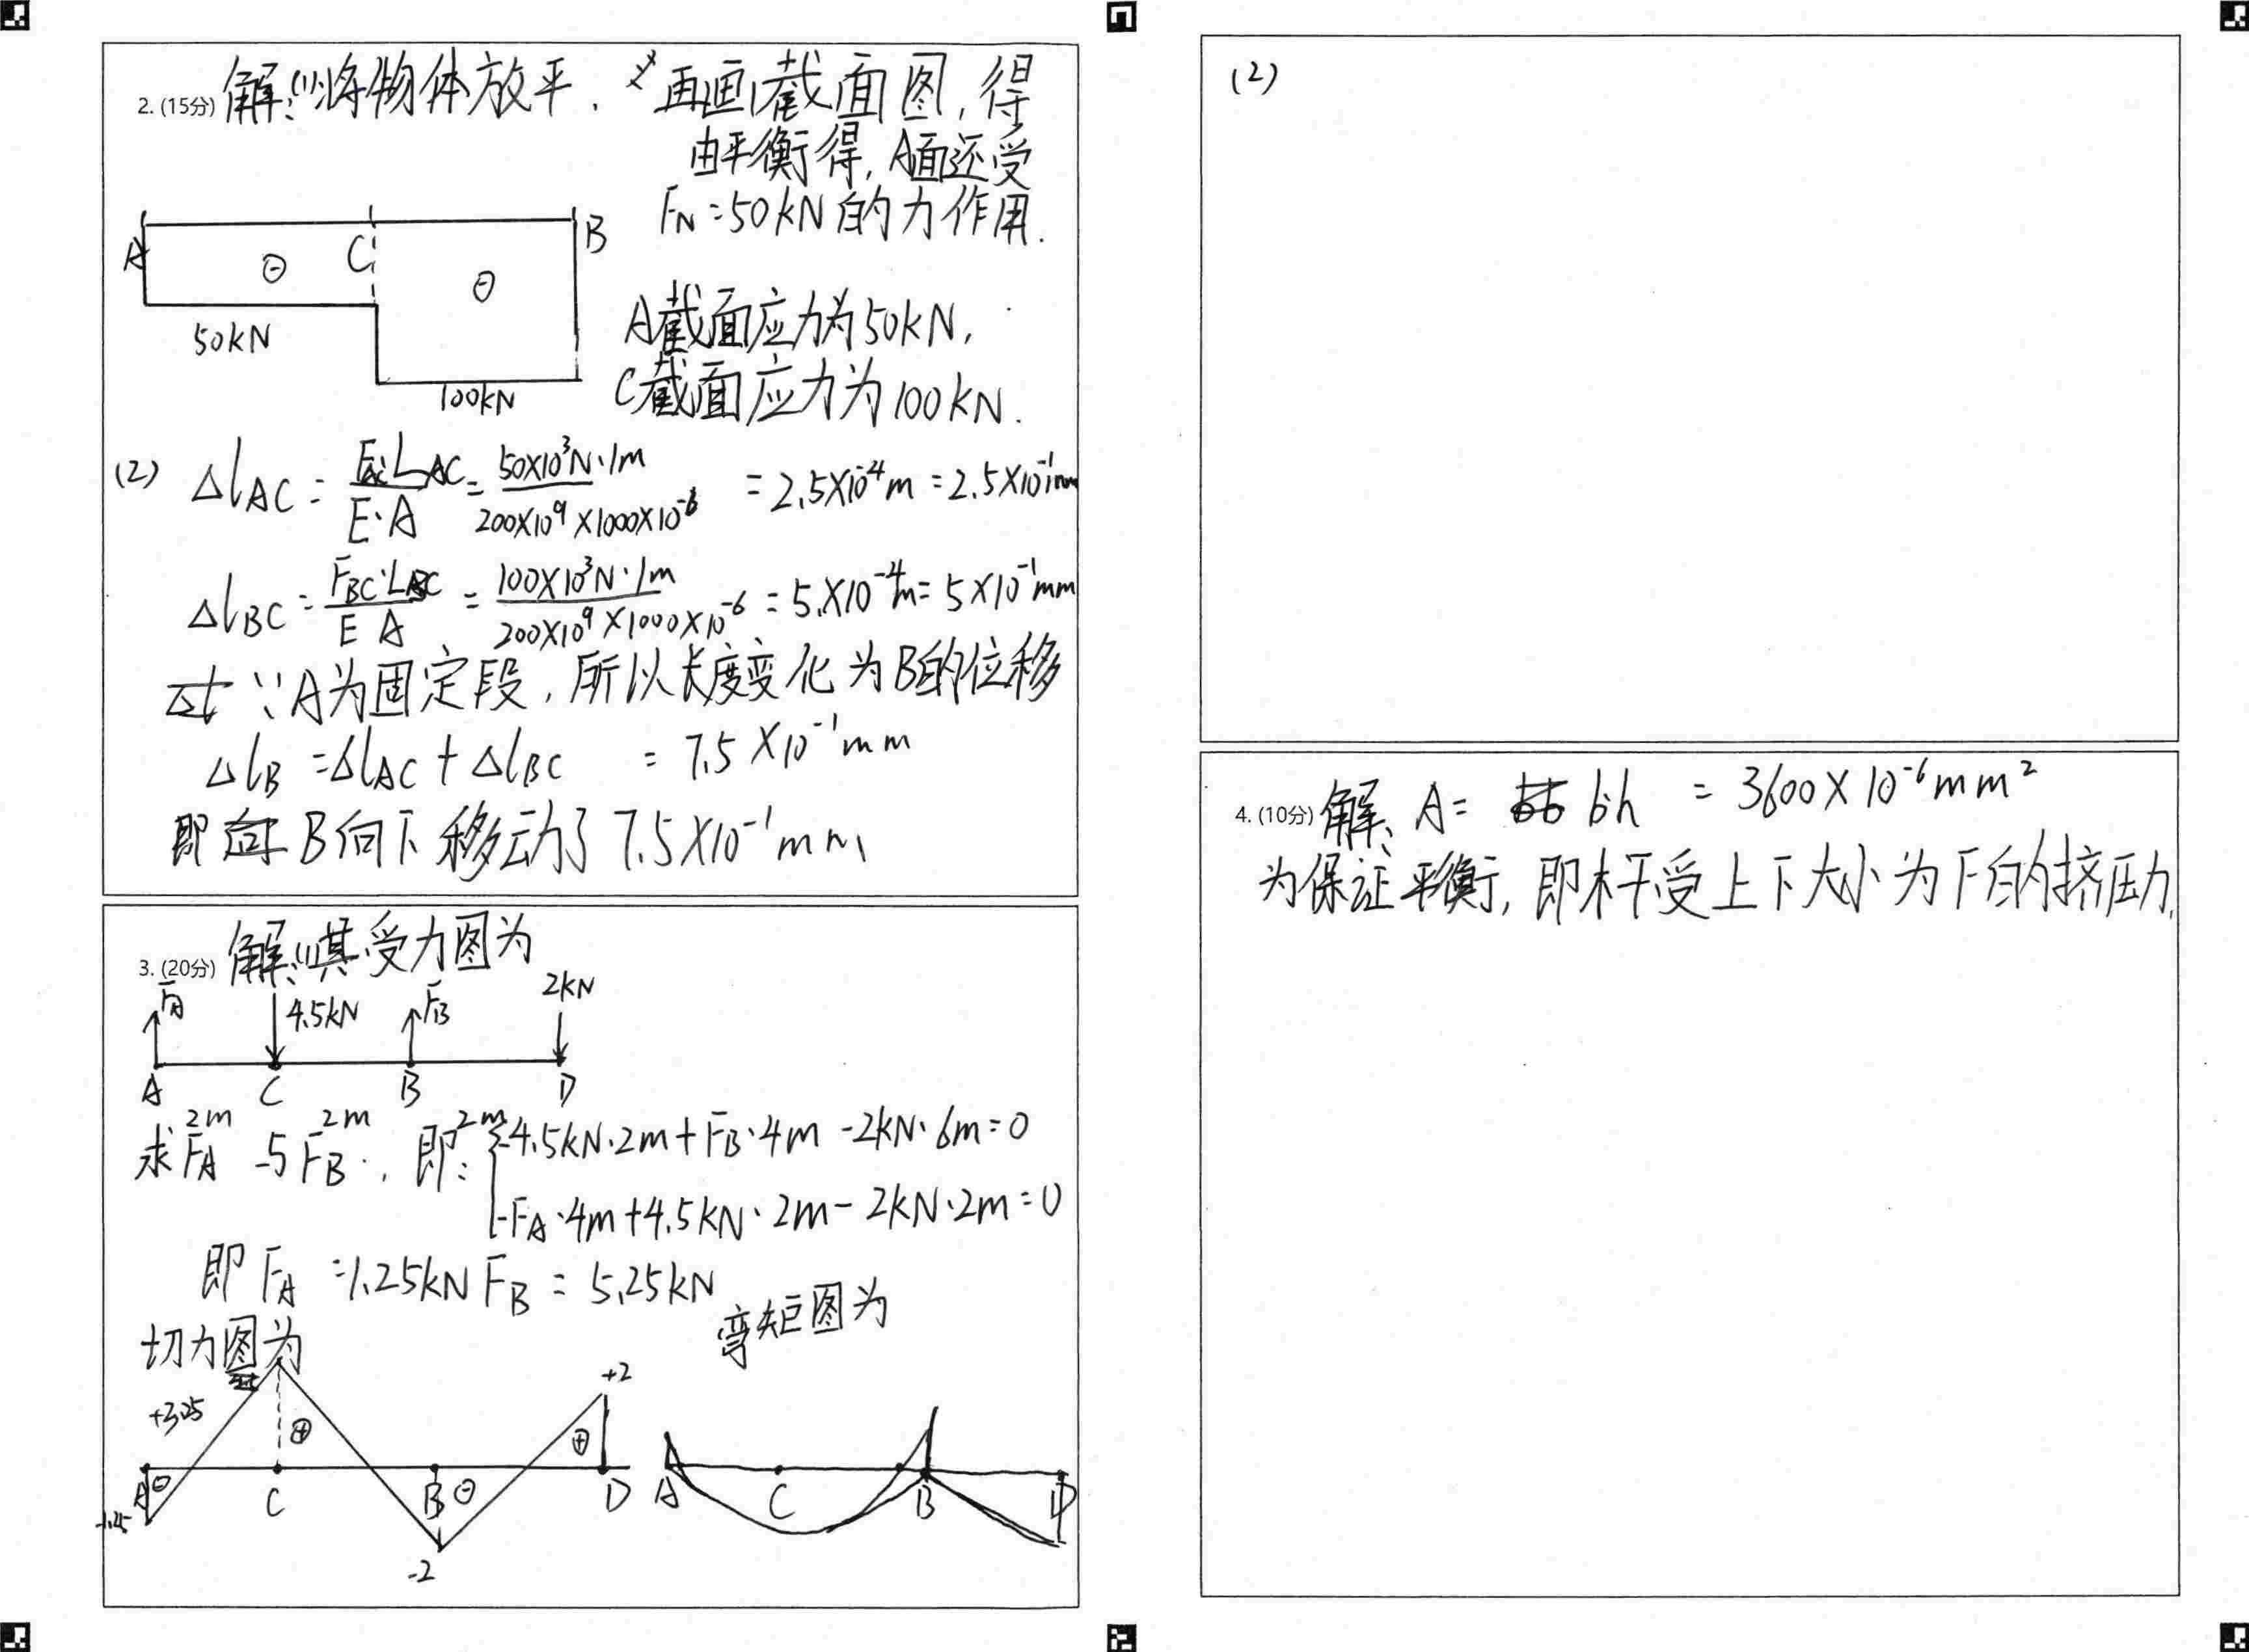 2. (15分) 解:(1)将物体放平. 再画截面图,得
由平衡得,A面还受
FN=50kN的力作用.
A C B
⊖ ⊖
50kN
100kN
A截面应力为50kN,
C截面应力为100kN.
(2) ΔlAC = FAC·LAC/E·A = 50×10³N·1m/200×10⁹×1000×10⁻⁶ = 2.5×10⁻⁴m = 2.5×10⁻¹mm
ΔlBC = FBC·LBC/E A = 100×10³N·1m/200×10⁹×1000×10⁻⁶ = 5×10⁻⁴m = 5×10⁻¹mm
∵A为固定段,所以长度变化为B的位移
ΔlB = ΔlAC + ΔlBC = 7.5×10⁻¹mm
即 B向下移动了 7.5×10⁻¹mm
3. (20分) 解:(1)其受力图为
FA 4.5kN FB 2kN
A C B D
2m 2m 2m
求FA与FB, 即: -4.5kN·2m+FB·4m-2kN·6m=0
-FA·4m+4.5kN·2m-2kN·2m=0
即 FA =1.25kN FB = 5.25kN
切力图为
弯矩图为
+3.25 ⊕ +2 ⊕
A ⊖ C B ⊖ D
-1.25
-2
A C B D
(2)
4. (10分) 解: A= b·h = 3600×10⁻⁶mm²
为保证平衡,即杆受上下大小为F的挤压力,